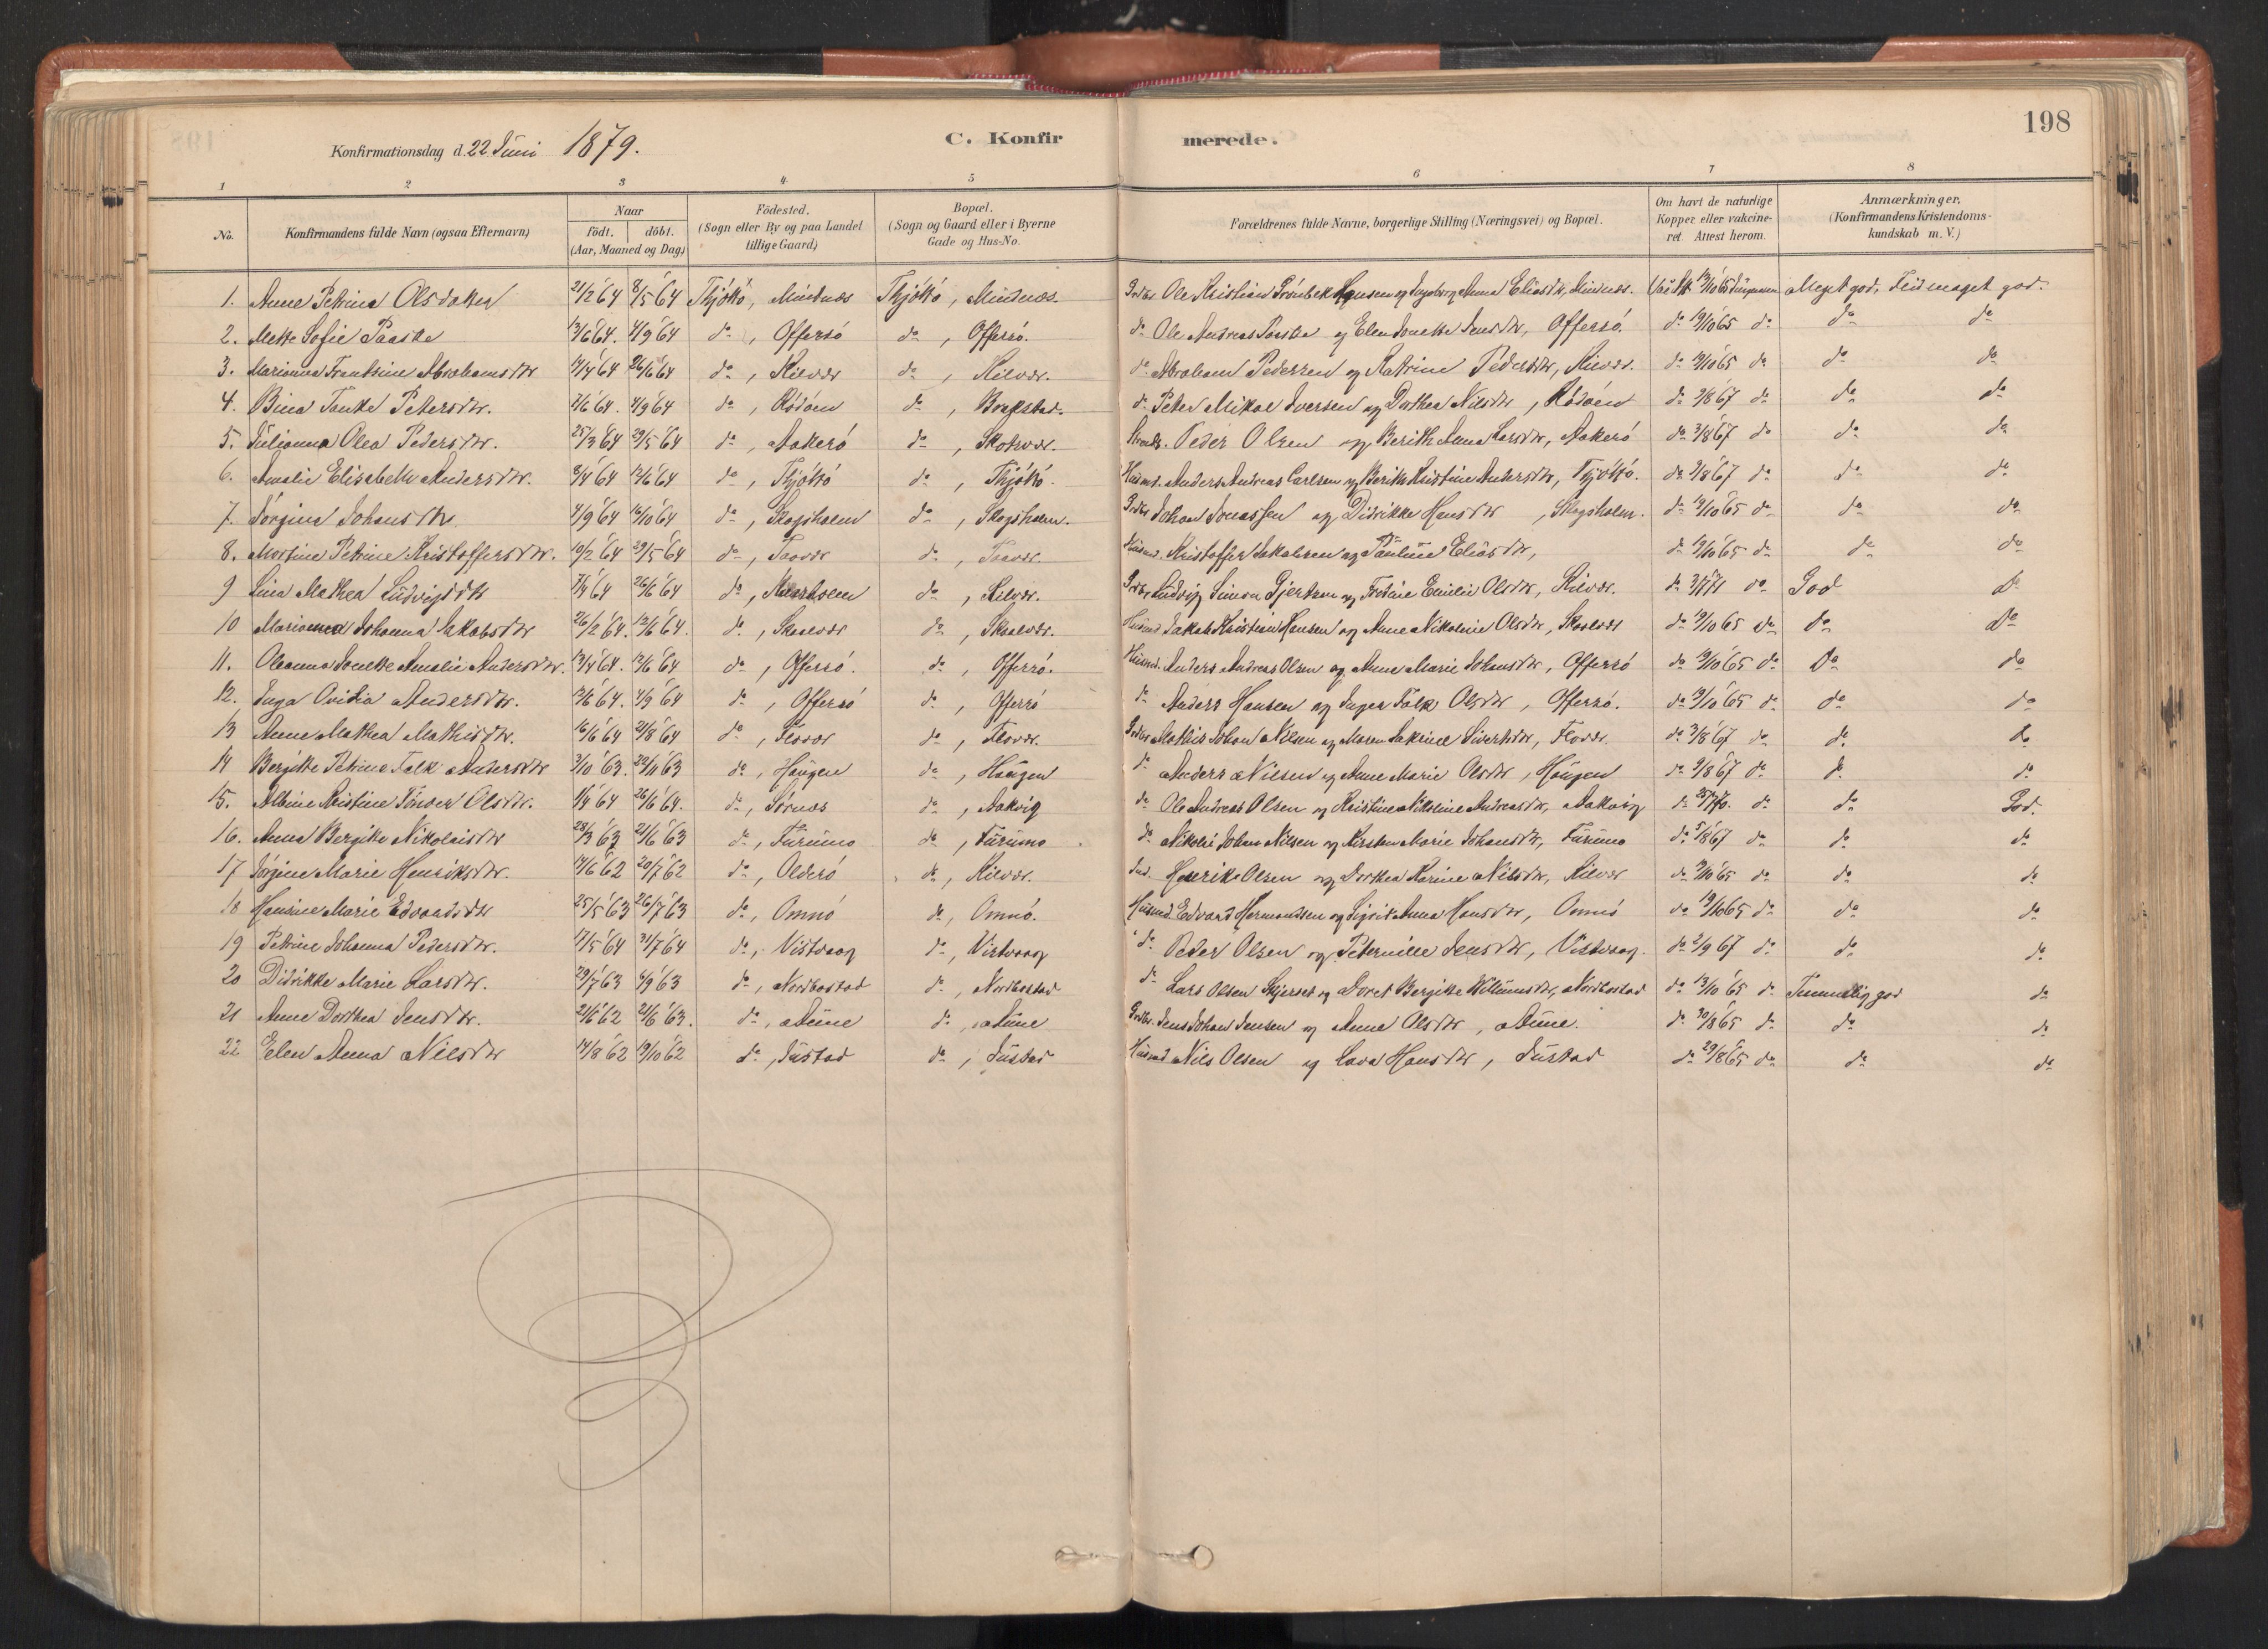 198
Konfirmationsdag d. 22 Juni 1879.
C. Konfirmerede.
1 2 3 4 5 6 7 8
No.
Konfirmandens fulde Navn (ogsaa Efternavn)
Naar
födt. döbt.
(Aar, Maaned og Dag)
Födested.
(Sogn eller By og paa Landet
tillige Gaard)
Bopæl.
(Sogn og Gaard eller i Byerne
Gade og Hus-No.
Forældrenes fulde Navne, borgerlige Stilling (Næringsvei) og Bopæl.
Om havt de naturlige
Kopper eller vakcine-
ret. Attest herom.
Anmærkninger.
(Konfirmandens Kristendoms-
kundskab m. V.)
1. Anne Petrina Olsdatter 21/2 64 8/5 64 Thjöttö, Mindnæs Thjöttö, Mindnæs Ole Kristian Hansen og Ingeborg Anna Eliasdtr, Mindnæs. 13/10 65 Meget god. Flid meget god.
2. Mette Sofie Paaske 13/6 64. 4/9 64 do, Offersö do, Offersö. do Ole Andreas Paaske og Elen Jonette Jensdtr, Offersö. do 19/10 65 do do do
3. Marianna Frantsine Abrahamsdtr 26/6 64 do, Kilvær do, Kilvær. do Abraham Pedersen og Katrine Pedersdtr, Kilvær. do 65 do do do
4. Bina Tanke Petersdtr. 2/6 64. 4/9 64 do, Rödöen do, Brækstad. do Peter Mikal Iversen og Dorthea Nilsdtr, Rödöen do 2/8 67 do do do
5. Julianna Olea Pedersdtr. 25/3 64 29/5 64 do, Aakerö do, Skotsvær. Peder Olsen og Berith Anna Larsdtr, Aakerö do 3/8 67 do do do
6. Amalie Elisabeth Andersdtr. 8/4 64 12/6 64 do, Thjöttö do, Thjöttö. Husmd. Anders Andreas Carlsen og Berith Kristine Andersdtr, Thjöttö. do 2/8 67 do do do
7. Jörgina Johansdtr. 4/9 64 16/10 64 do, Skogsholm do, Skogsholm. Johan Jonassen og Didrikke Hansdtr, Skogsholm. do 19/10 65 do do do
8. Martine Petrine Kristoffersdtr. 10/2 64 29/5 64 do, Taavær do, Taavær. Husmd. Kristoffer Jakobsen og Pauline Eliasdtr, do 19/10 65 do do do
9 Lina Mathea Ludvigsdtr 7/4 64 26/6 64 do, do, Kilvær. Ludvig Simon Gjertsen og Fredrine Emilie Olsdtr, Kilvær. do 71 do God do
10 Marianna Johanna Jakobsdtr 26/2 64. 12/6 64. do, Skaalvær do, Skaalvær. Husmd Jakob Kristian Hansen og Anne Nikoline Olsdtr, Skaalvær do 19/10 65 do do do
11. Oleanna Jonette Amalie Andersdtr. 13/4 64. 12/6 64 do, Offersö. do, Offersö. Husmd. Anders Andreas Olsen og Anne Marie Johansdtr, Offersö do 19/10 65 do do do
12. Inga Ovidia Andersdtr. 12/6 64. 4/9 64 do, Offersö do, Offersö do Anders Hansen og Inger Falk Olsdtr, Offersö. do 19/10 65 do do do
13 Anne Mathea Mathisdtr. 16/6 64 21/8 64 do, Flovær do, Flovær. Mathis Johan Nilsen og Maren Jakine Sivertsdtr, Flovær. do 3/8 67 do do do
14 Bergitte Petrine Falk Andersdtr 3/10 63. 22/11 63 do, Haugen do, Haugen do Anders Nilsen og Anne Marie Olsdtr, Haugen do 2/8 67 do do do
15. Albine Kristine Tönder Olsdtr. 1/4 64 26/6 64. do, Sörnæs do, Aakvig do Ole Andreas Olsen og Kristine Nikoline Andreasdtr, Aakvig do 25/7 70. do do God.
16. Anna Bergitte Nikolaisdtr 28/3 63 21/6 63 do, Furumo do, Furumo do Nikolai Johan Nilsen og Kirsten Marie Johansdtr, Furumo do 5/8 67 do do do
17 Jörgine Marie Henriksdtr. 14/6 62 20/7 62 do, Olderö do, Kilvær. Ind. Henrik Olsen og Dorthea Karine Nilsdtr, Kilvær do 19/10 65 do do do
18 Hansine Marie Edvardsdtr 25/5 63 26/7 63 do, Omnö do, Omnö. Husmd. Edvard Hermandsen og Sigrid Anna Hansdtr, Omnö do 19/10 65 do do do
19 Petrine Johanna Pedersdtr. 17/5 64 31/7 64 do, Vistvaag do, Vistvaag do Peder Olsen og Petternille Jensdtr, Vistvaag. do 2/9 67 do do do
20 Didrikke Marie Larsdtr. 29/7 63 6/9 63 do, Nordbostad do, Nordbostad do Lars Olsen Skjerset og Doret Bergitte Willumsdtr, Nordbostad do 13/10 65 do Temmelig god do
21 Anne Dorthea Jensdtr. 21/6 62 21/6 63. do, Aune do, Aune Jens Johan Jensen og Anna Olsdtr, Aune. do 30/8 65 do do do
22 Elen Anna Nilsdtr 14/8 62 19/10 62 do, Justad do, Justad Husmd Nils Olsen og Lava Hansdtr, Justad do 29/8 65 do do do